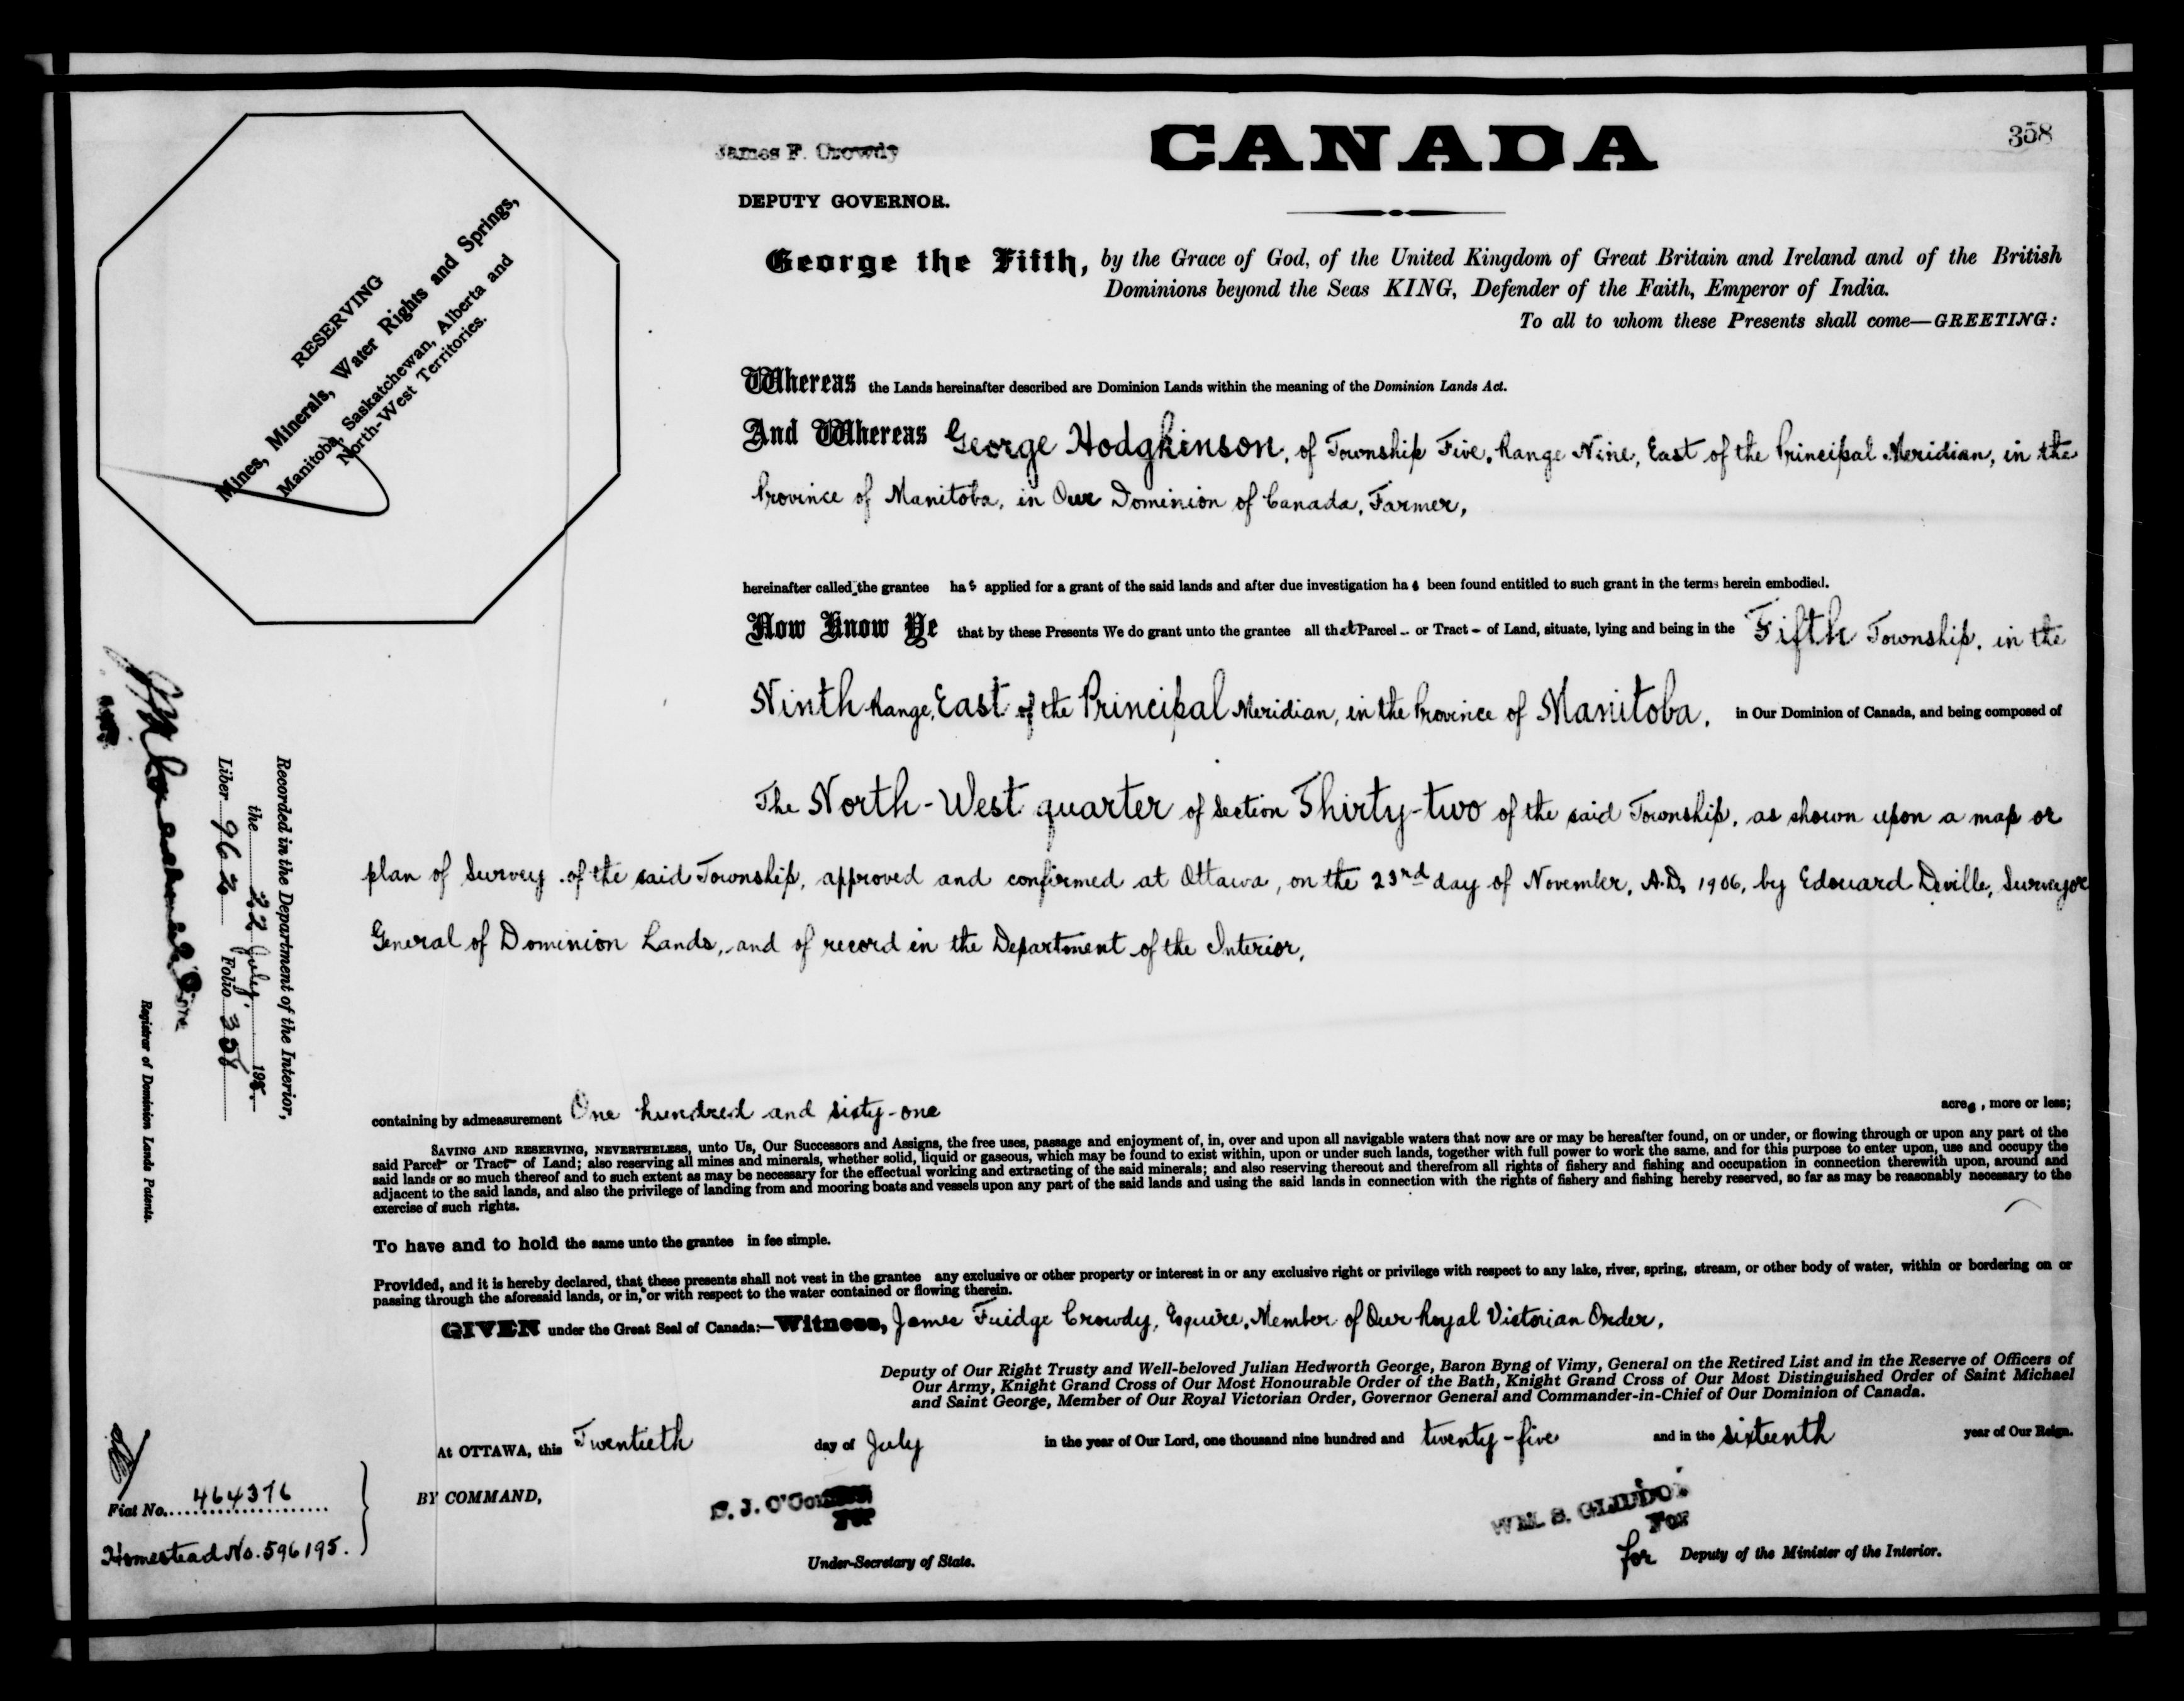 358
James F. Crowdy
CANADA
DEPUTY GOVERNOR.
George the Fifth, by the Grace of God, of the United Kingdom of Great Britain and Ireland and of the British
Dominions beyond the Seas KING, Defender of the Faith, Emperor of India.
To all to whom these Presents shall come—GREETING:
RESERVING
Mines, Minerals, Water Rights and Springs,
Manitoba, Saskatchewan, Alberta and
North-West Territories.
Whereas the Lands hereinafter described are Dominion Lands within the meaning of the Dominion Lands Act.
And Whereas George Hodgkinson, of Township Five, Range Nine, East of the Principal Meridian, in the
Province of Manitoba, in Our Dominion of Canada, Farmer,
hereinafter called the grantee has applied for a grant of the said lands and after due investigation has been found entitled to such grant in the terms herein embodied.
Now Know Ye that by these Presents We do grant unto the grantee all that Parcel - or Tract - of Land, situate, lying and being in the Fifth Township, in the
Ninth Range, East of the Principal Meridian, in the Province of Manitoba, in Our Dominion of Canada, and being composed of
The North-West quarter of Section Thirty-two of the said Township, as shown upon a map or
plan of Survey of the said Township, approved and confirmed at Ottawa, on the 23rd day of November, A.D. 1906, by Edouard Deville, Surveyor
General of Dominion Lands, and of record in the Department of the Interior,
containing by admeasurement One hundred and sixty-one acres, more or less;
SAVING AND RESERVING, NEVERTHELESS, unto Us, Our Successors and Assigns, the free uses, passage and enjoyment of, in, over and upon all navigable waters that now are or may be hereafter found, on or under, or flowing through or upon any part of the
said Parcel or Tract of Land; also reserving all mines and minerals, whether solid, liquid or gaseous, which may be found to exist within, upon or under such lands, together with full power to work the same, and for this purpose to enter upon, use and occupy the
said lands or so much thereof and to such extent as may be necessary for the effectual working and extracting of the said minerals; and also reserving thereout and therefrom all rights of fishery and fishing and occupation in connection therewith upon, around and
adjacent to the said lands, and also the privilege of landing from and mooring boats and vessels upon any part of the said lands and using the said lands in connection with the rights of fishery and fishing hereby reserved, so far as may be reasonably necessary to the
exercise of such rights.
To have and to hold the same unto the grantee in fee simple.
Provided, and it is hereby declared, that these presents shall not vest in the grantee any exclusive or other property or interest in or any exclusive right or privilege with respect to any lake, river, spring, stream, or other body of water, within or bordering on or
passing through the aforesaid lands, or in, or with respect to the water contained or flowing therein.
GIVEN under the Great Seal of Canada:—Witness, James Fuidge Crowdy, Esquire, Member of Our Royal Victorian Order,
Deputy of Our Right Trusty and Well-beloved Julian Hedworth George, Baron Byng of Vimy, General on the Retired List and in the Reserve of Officers of
Our Army, Knight Grand Cross of Our Most Honourable Order of the Bath, Knight Grand Cross of Our Most Distinguished Order of Saint Michael
and Saint George, Member of Our Royal Victorian Order, Governor General and Commander-in-Chief of Our Dominion of Canada.
At OTTAWA, this Twentieth day of July in the year of Our Lord, one thousand nine hundred and twenty-five and in the sixteenth year of Our Reign.
BY COMMAND,
For
Under-Secretary of State.
WM. S. GLIDDON
For
for Deputy of the Minister of the Interior.
Fiat No. 464376
Homestead No. 596195.
Recorded in the Department of the Interior,
the 22 July, 192
Liber 962 Folio 358
Registrar of Dominion Lands Patents.